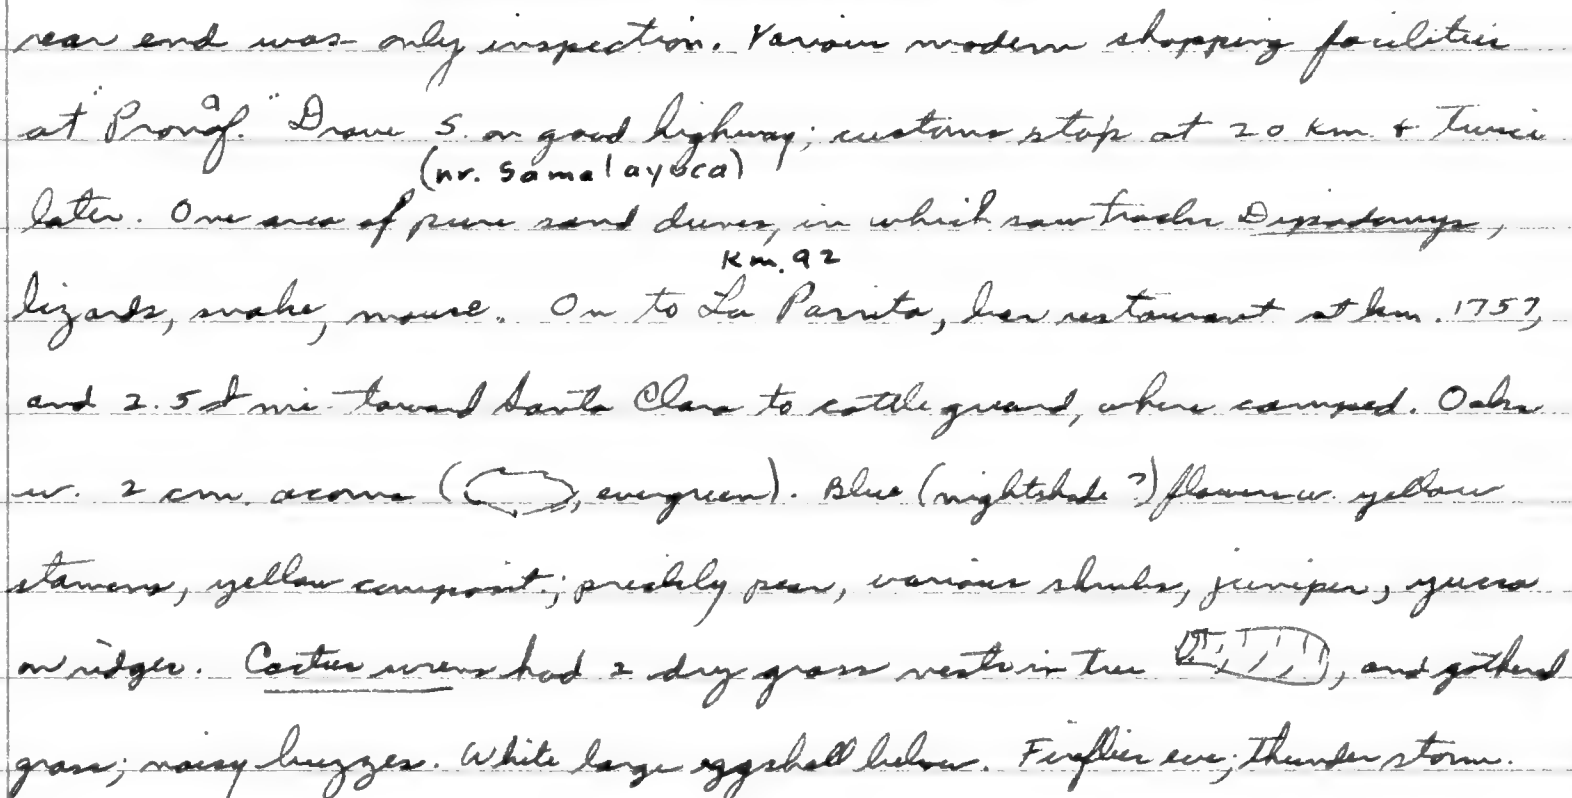 rear end was only inspection. Various modern shopping facilities
at "Pronaf." Drove S. on good highway; customs stop at 20 km & twice
(nr. Samalayuca)
later. One area of pure sand dunes, in which saw tracks Dipodomys,
km. 92
lizards, snake, mouse. On to La Parrita, bar restaurant at km. 1757,
and 2.5 mi toward Santa Clara to cattle guard, where camped. Oaks
w. 2 cm. acorns ( , evergreen). Blue (nightshade ?) flowers w. yellow
stamens, yellow composit.; prickly pear, various shrubs, juniper, yucca
on ridges. Cactus wrens had 2 dry grass nests in tree , and gathered
grass; noisy buzzes. White large eggshell below. Fireflies eve; thunder storm.